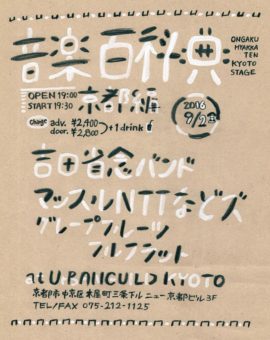 音楽百科典
ONGAKU
HYAKKA
TEN
KYOTO
STAGE
OPEN 19:00
START 19:30
京都編
2016
9/2
charge adv. ¥2,400
door. ¥2,800
+1 drink
吉田省念バンド
マッスルNTTなどズ
グレープフルーツ
フルフラット
at URBANGUILD KYOTO
京都市中京区木屋町三条下ル ニュー京都ビル3F
TEL/FAX 075-212-1125